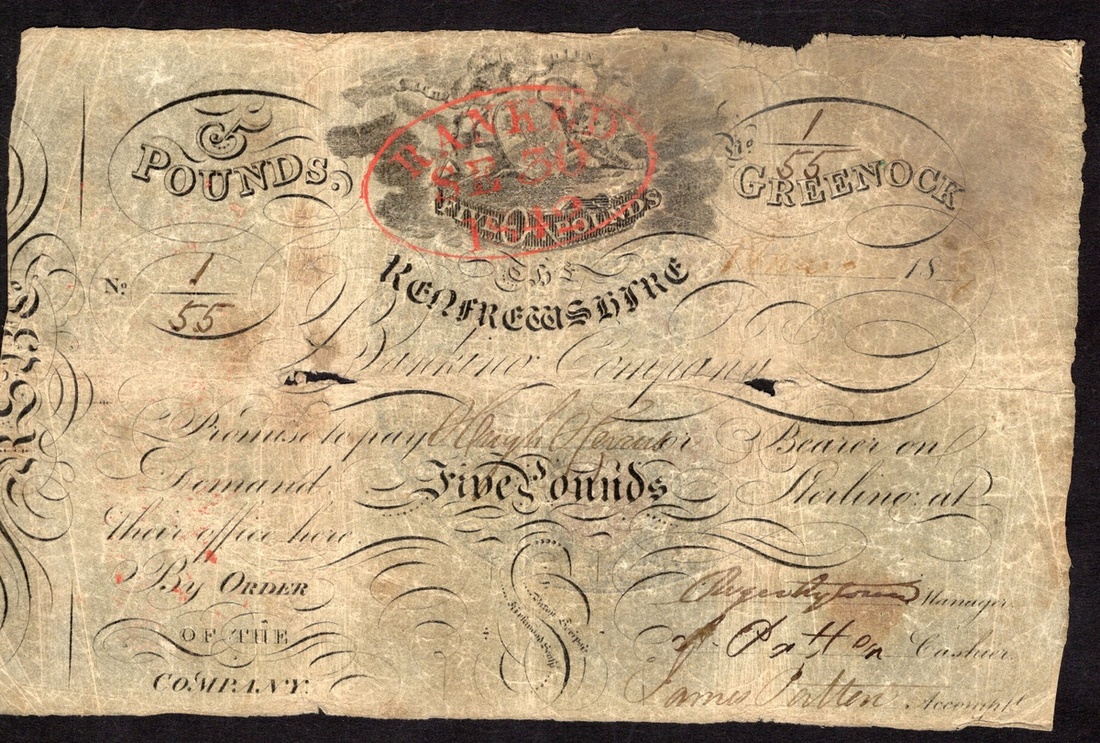 £5
POUNDS.
RANKED
SE 30
1842
FIVE POUNDS
No. 1/55
GREENOCK
No. 1/55
18
THE
RENFREWSHIRE
Banking Company
Promise to pay Hugh or Bearer on
Demand Five Pounds Sterling at
their office here.
BY ORDER
OF THE
COMPANY.
Manager.
J. Patten Cashier.
James Patten Accompt.